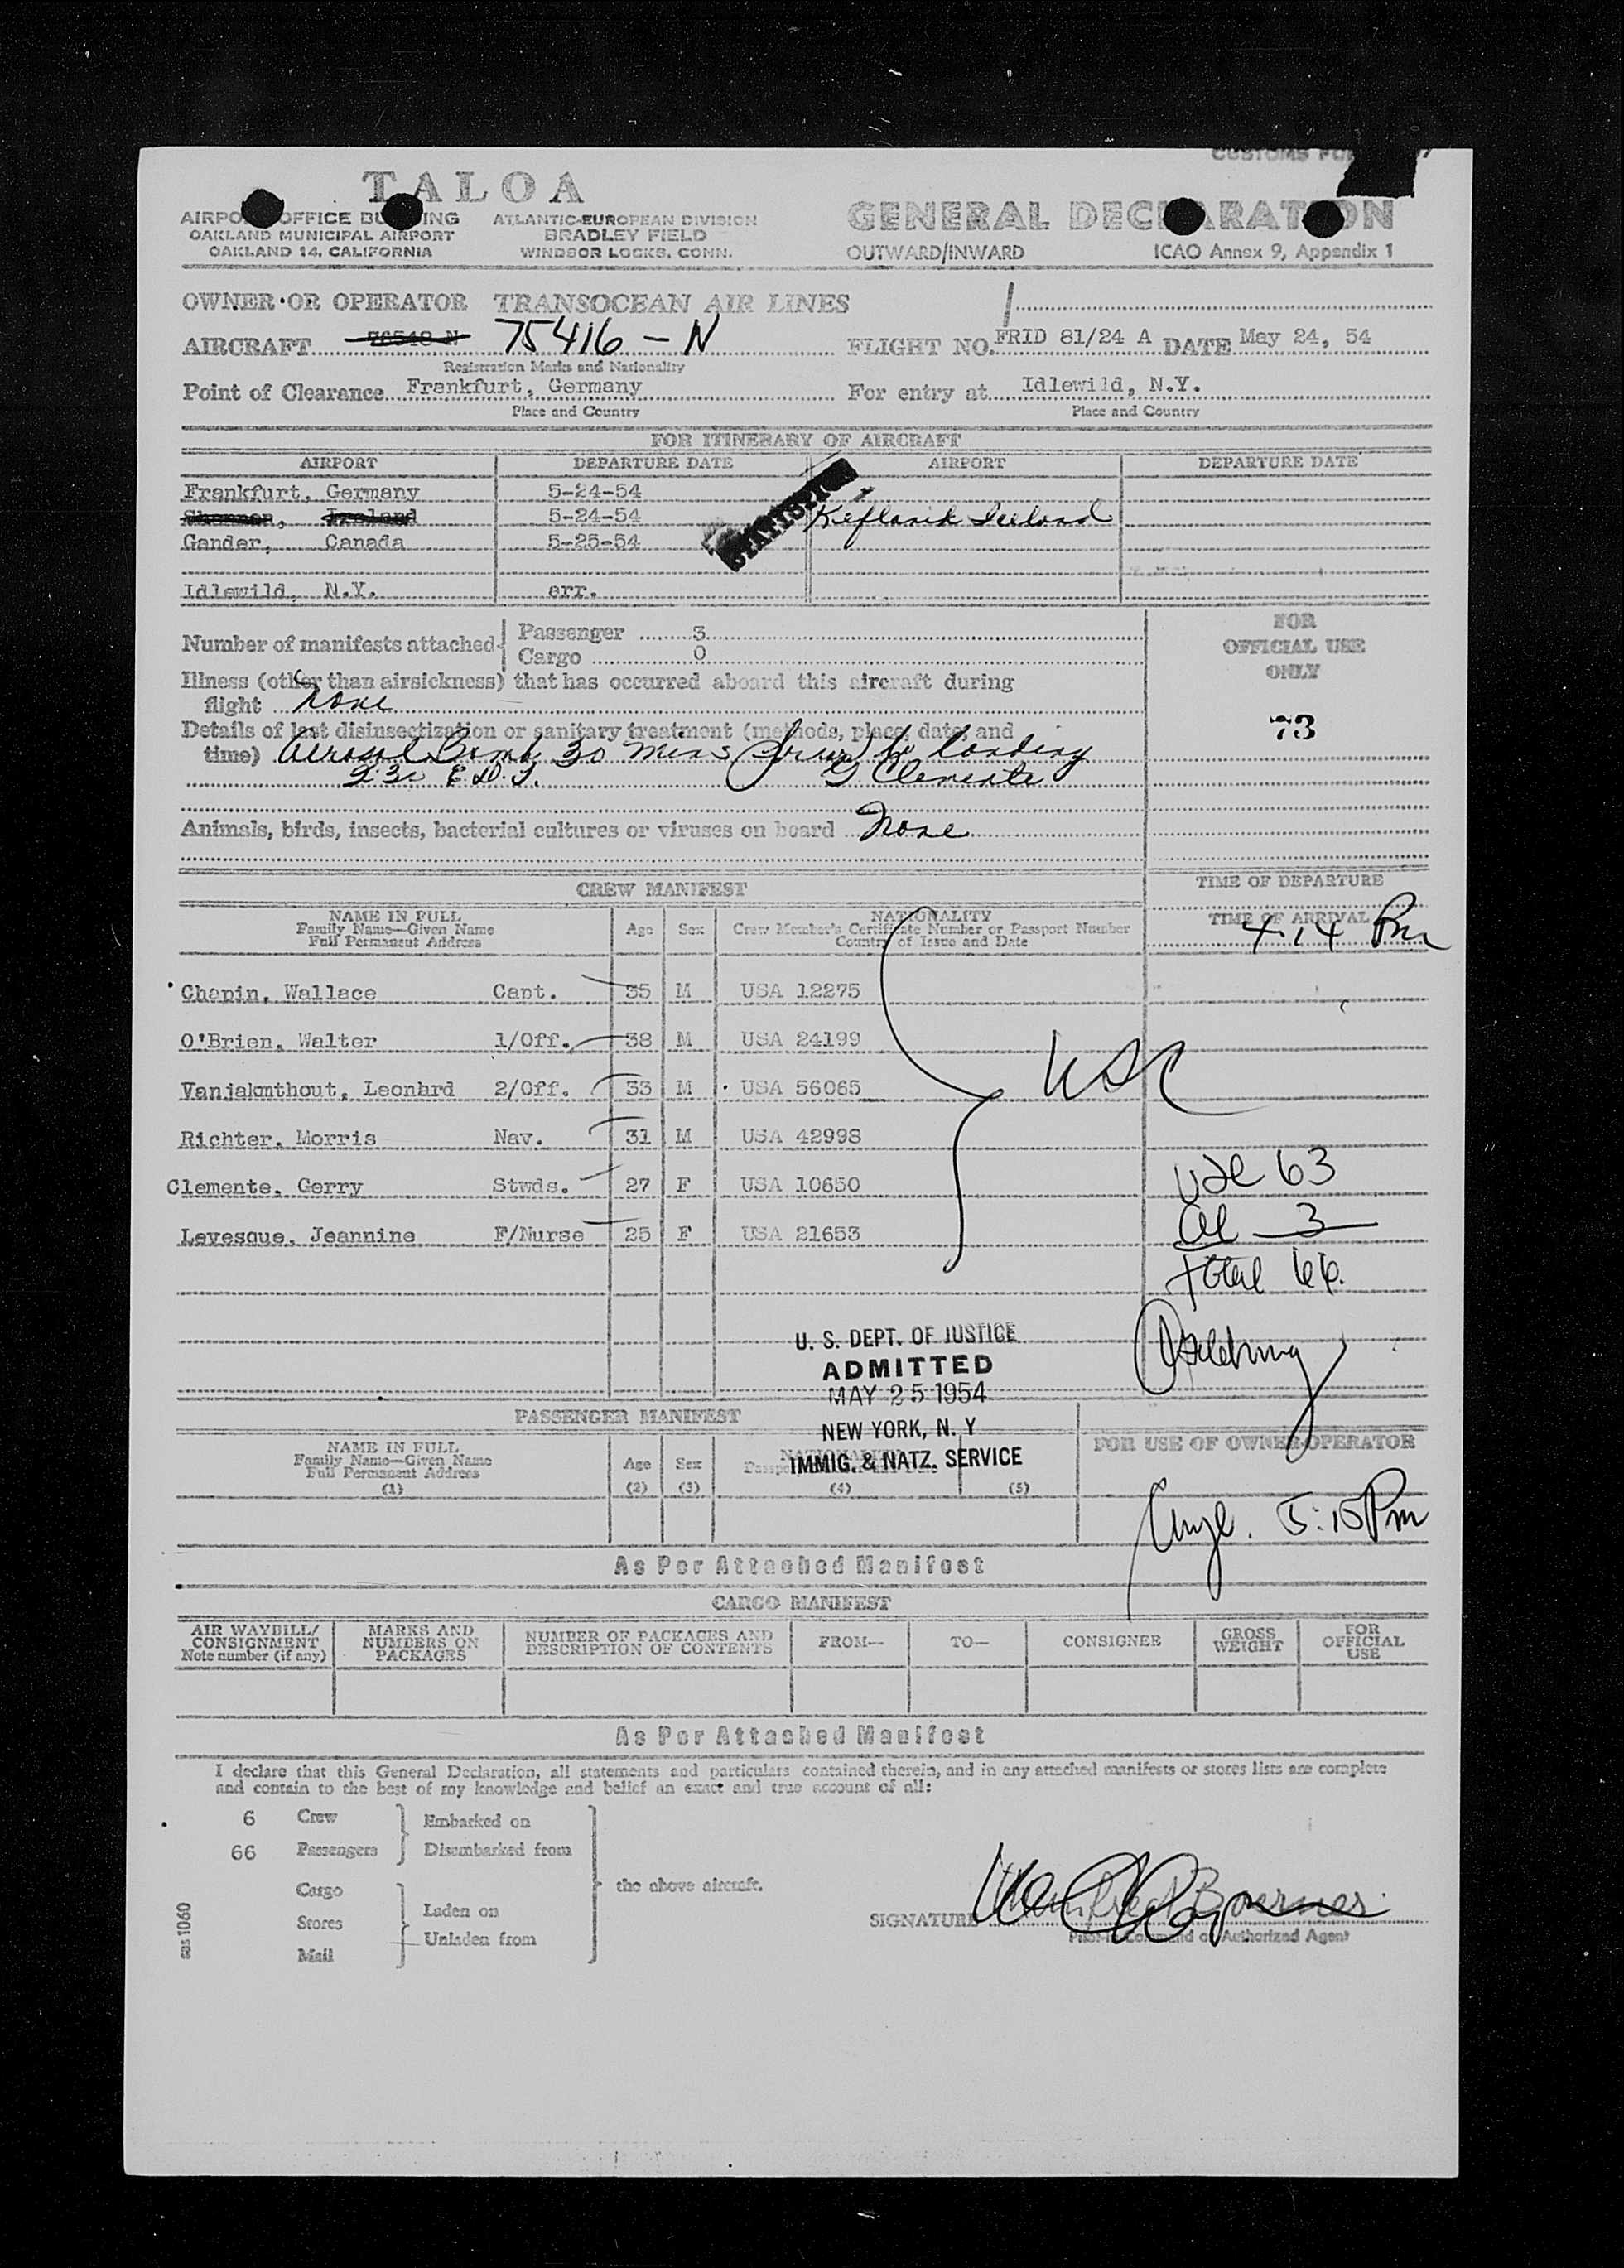 CUSTOMS FO
TALOA
AIRPO OFFICE BU ING
OAKLAND MUNICIPAL AIRPORT
OAKLAND 14, CALIFORNIA
ATLANTIC-EUROPEAN DIVISION
BRADLEY FIELD
WINDSOR LOCKS, CONN.
GENERAL DEC ARAT ON
OUTWARD/INWARD ICAO Annex 9, Appendix 1
OWNER OR OPERATOR TRANSOCEAN AIR LINES
AIRCRAFT 75416-N FLIGHT NO. FRID 81/24 A DATE May 24, 54
Registration Marks and Nationality
Point of Clearance Frankfurt, Germany For entry at Idlewild, N.Y.
Place and Country Place and Country
FOR ITINERARY OF AIRCRAFT
AIRPORT DEPARTURE DATE AIRPORT DEPARTURE DATE
Frankfurt, Germany 5-24-54
Shannon, Ireland 5-24-54 Keflavik Iceland
Gander, Canada 5-25-54
Idlewild, N.Y. arr.
Number of manifests attached
Passenger 3
Cargo 0
FOR
OFFICIAL USE
ONLY
73
Illness (other than airsickness) that has occurred aboard this aircraft during
flight None
Details of last disinsectization or sanitary treatment (methods, place, date, and
time) Aerosol Bomb 30 mins prior to landing
E.D.T. G Clemente
Animals, birds, insects, bacterial cultures or viruses on board None
CREW MANIFEST
TIME OF DEPARTURE
TIME OF ARRIVAL
4:14 Pm
NAME IN FULL
Family Name—Given Name
Full Permanent Address
Age Sex
NATIONALITY
Crew Member's Certificate Number or Passport Number
Country of Issue and Date
Chapin, Wallace Capt. 35 M USA 12275
O'Brien, Walter 1/Off. 38 M USA 24199
Vanjakmthout, Leonard 2/Off. 33 M USA 56065
Richter, Morris Nav. 31 M USA 42998
Clemente, Gerry Stwds. 27 F USA 10650
Levesque, Jeannine F/Nurse 25 F USA 21653
USC
USC 63
Al 3
Total 66.
U. S. DEPT. OF JUSTICE
ADMITTED
MAY 25 1954
NEW YORK, N. Y
IMMIG. & NATZ. SERVICE
PASSENGER MANIFEST
NAME IN FULL
Family Name—Given Name
Full Permanent Address
(1)
Age
(2)
Sex
(3)
(4) (5)
FOR USE OF OWNER-OPERATOR
5:15 Pm
As Per Attached Manifest
CARGO MANIFEST
AIR WAYBILL/
CONSIGNMENT
Note number (if any)
MARKS AND
NUMBERS ON
PACKAGES
NUMBER OF PACKAGES AND
DESCRIPTION OF CONTENTS
FROM—
TO—
CONSIGNEE
GROSS
WEIGHT
FOR
OFFICIAL
USE
As Per Attached Manifest
I declare that this General Declaration, all statements and particulars contained therein, and in any attached manifests or stores lists are complete
and contain to the best of my knowledge and belief an exact and true account of all:
6 Crew Embarked on
66 Passengers Disembarked from
the above aircraft.
Cargo
Stores
Mail
Laden on
Unladen from
SIGNATURE
Pilot-in-Command or Authorized Agent
sas 1060